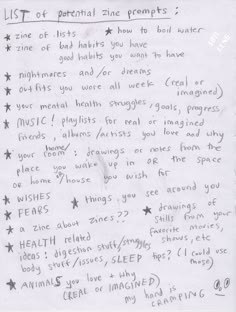 LIST of potential zine prompts:
★ zine of lists ★ how to boil water
★ zine of bad habits you have
good habits you want to have
★ nightmares and/or dreams
★ outfits you wore all week (real or imagined)
★ your mental health struggles, goals, progress
★ MUSIC! playlists for real or imagined
friends, albums/artists you love and why
★ your room/home: drawings or notes from the
place you wake up in OR the space
or home/house you wish for
★ WISHES ★ things you see around you
★ FEARS
★ a zine about zines?? ★ drawings of
stills from your
favorite movies,
shows, etc
★ HEALTH related
ideas: digestion stuff/struggles
body stuff/issues, SLEEP tips? (I could use
those)
★ ANIMALS you love + why
(REAL or IMAGINED)
my hand is
CRAMPING